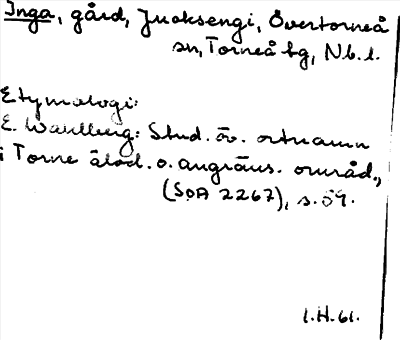 Inga, gård, Juoksengi, Övertorneå
sn, Torneå tg, N.b.l.
Etymologi:
E. Wahlberg: Stud. öv. ortnamn
i Torne älvd. o. angräns. områd.,
(SOA 2267), s. 59.
l.H.61.